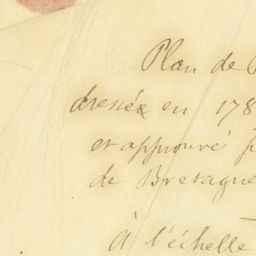 Plan de
dressée en 178
et approuvé
de Bretagne
à l'échelle